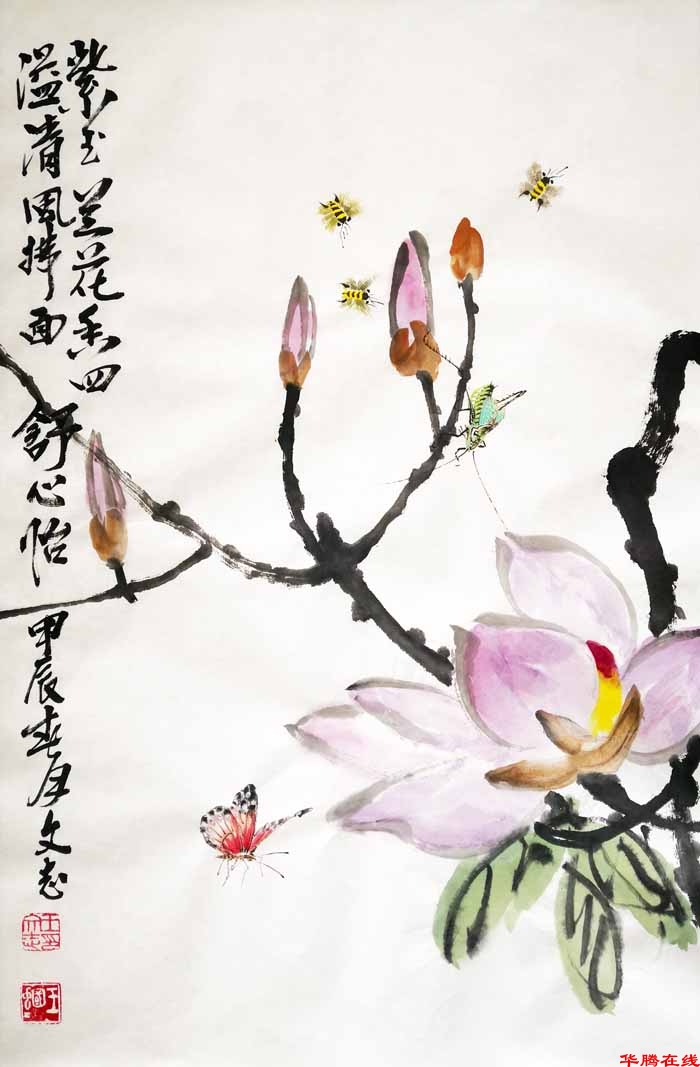 紫玉兰花香四
溢清風拂面舒心怡
甲辰春月文志
华腾在线